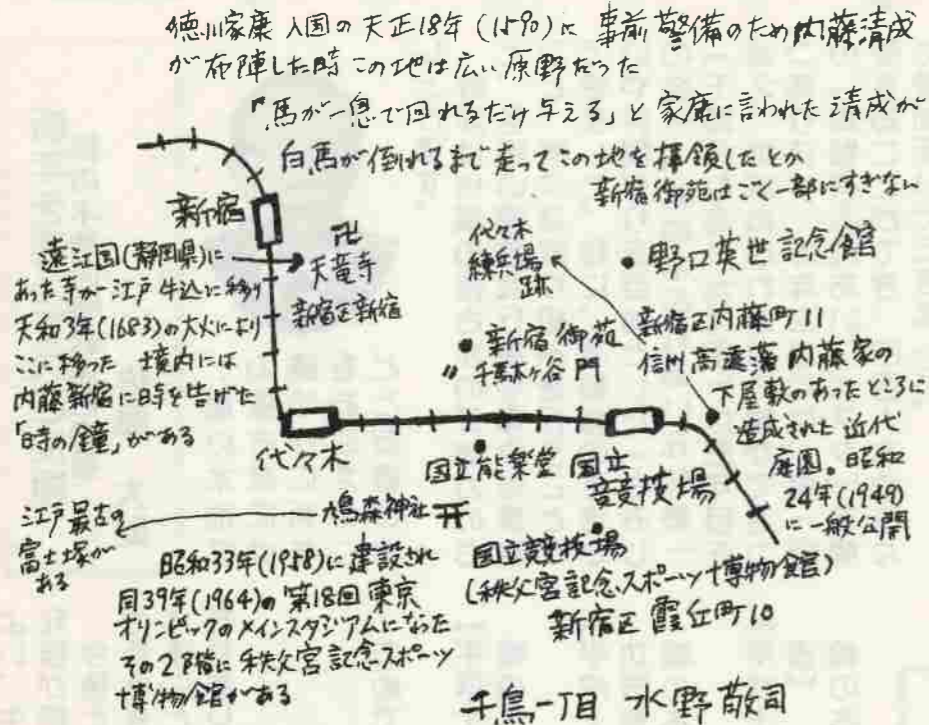 徳川家康入国の天正18年(1590)に事前警備のため内藤清成
が布陣した時この地は広い原野だった
「馬が一息で回れるだけ与える」と家康に言われた清成が
白馬が倒れるまで走ってこの地を拝領したとか
新宿御苑はごく一部にすぎない
新宿
卍
天竜寺
新宿区新宿
遠江国(静岡県)に
あった寺が江戸牛込に移り
天和3年(1683)の大火により
ここに移った 境内には
内藤新宿に時を告げた
「時の鐘」がある
代々木
練兵場
跡
野口英世記念館
新宿御苑
〃 千駄ヶ谷門
新宿区内藤町11
信州高遠藩内藤家の
下屋敷のあったところに
造成された近代
庭園。昭和
24年(1949)
に一般公開
代々木
国立能楽堂
国立
競技場
江戸最古の
富士塚が
ある
鳩森神社
昭和33年(1958)に建設され
同39年(1964)の第18回東京
オリンピックのメインスタジアムになった
その2階に秩父宮記念スポーツ
博物館がある
国立競技場
(秩父宮記念スポーツ博物館)
新宿区霞丘町10
千鳥一丁目 水野敬司